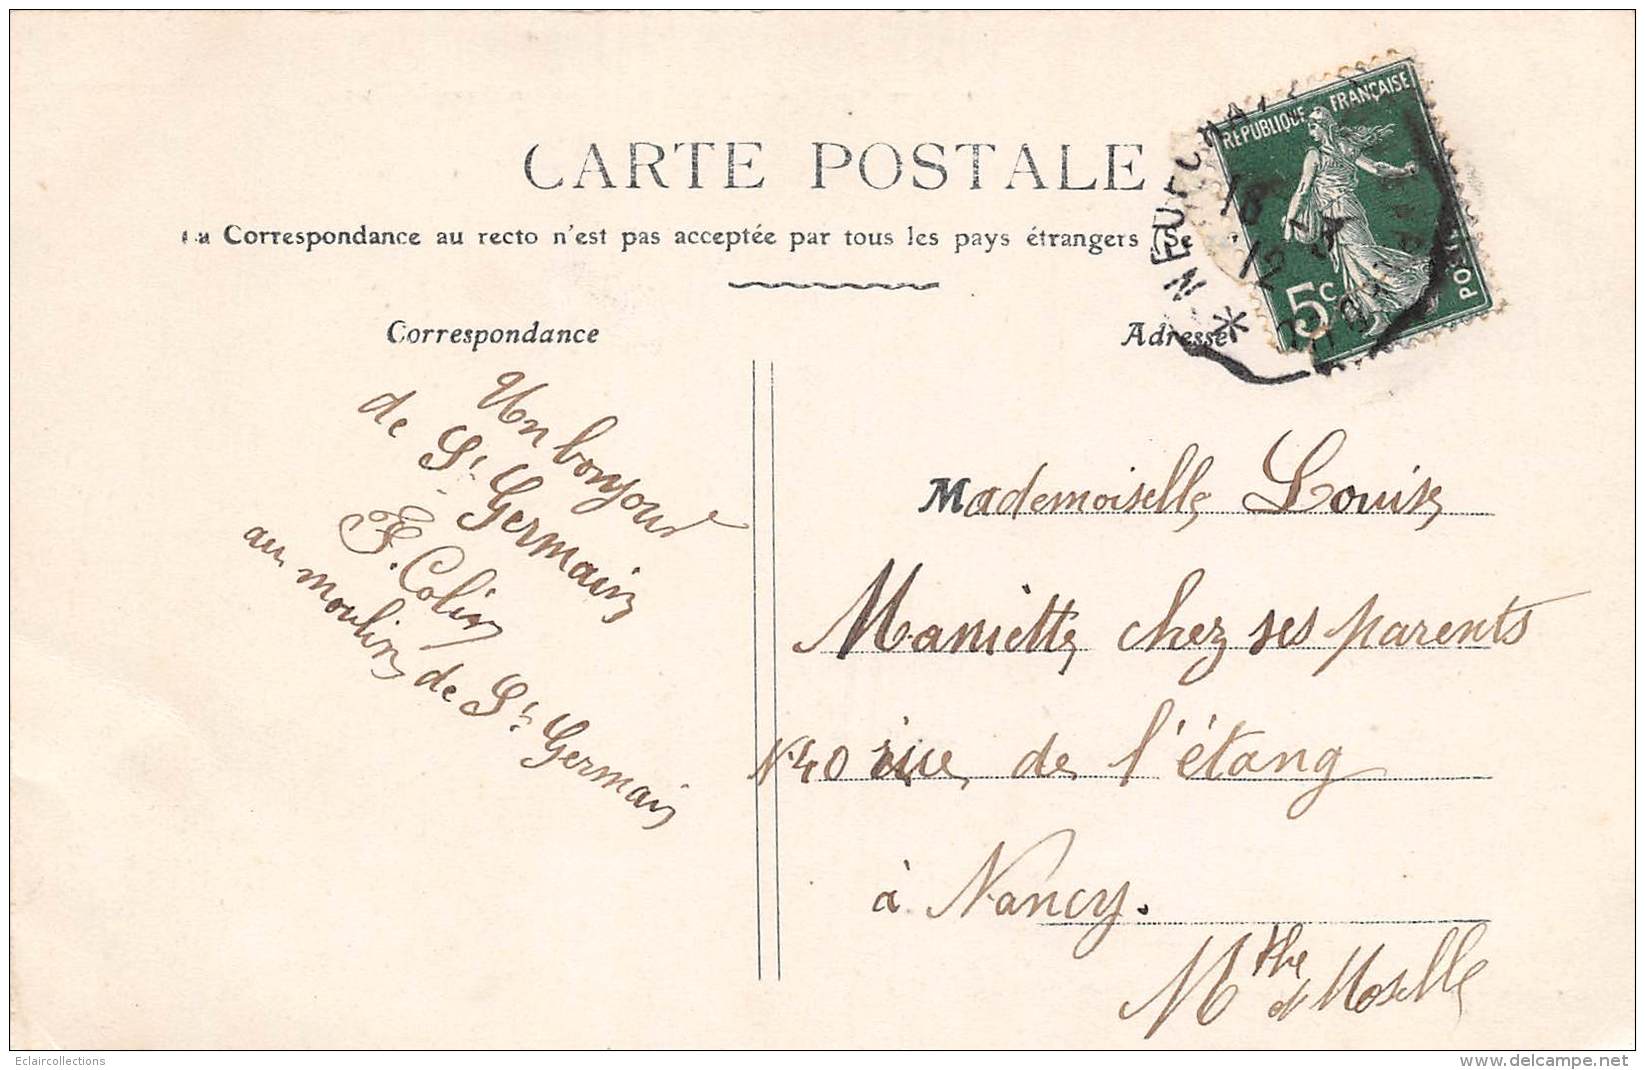 CARTE POSTALE
La Correspondance au recto n'est pas acceptée par tous les pays étrangers (Se
RÉPUBLIQUE FRANÇAISE
POSTES
5c
NEUFCHATEAU
18
Correspondance
Adresse
Un bonjour
de St Germain
F. Colin
au moulin de St Germain
Mademoiselle Louise
Maniette chez ses parents
N.40 rue de l'étang
à Nancy.
Mthe
et Moselle
Eclaircollections
www.delcampe.net